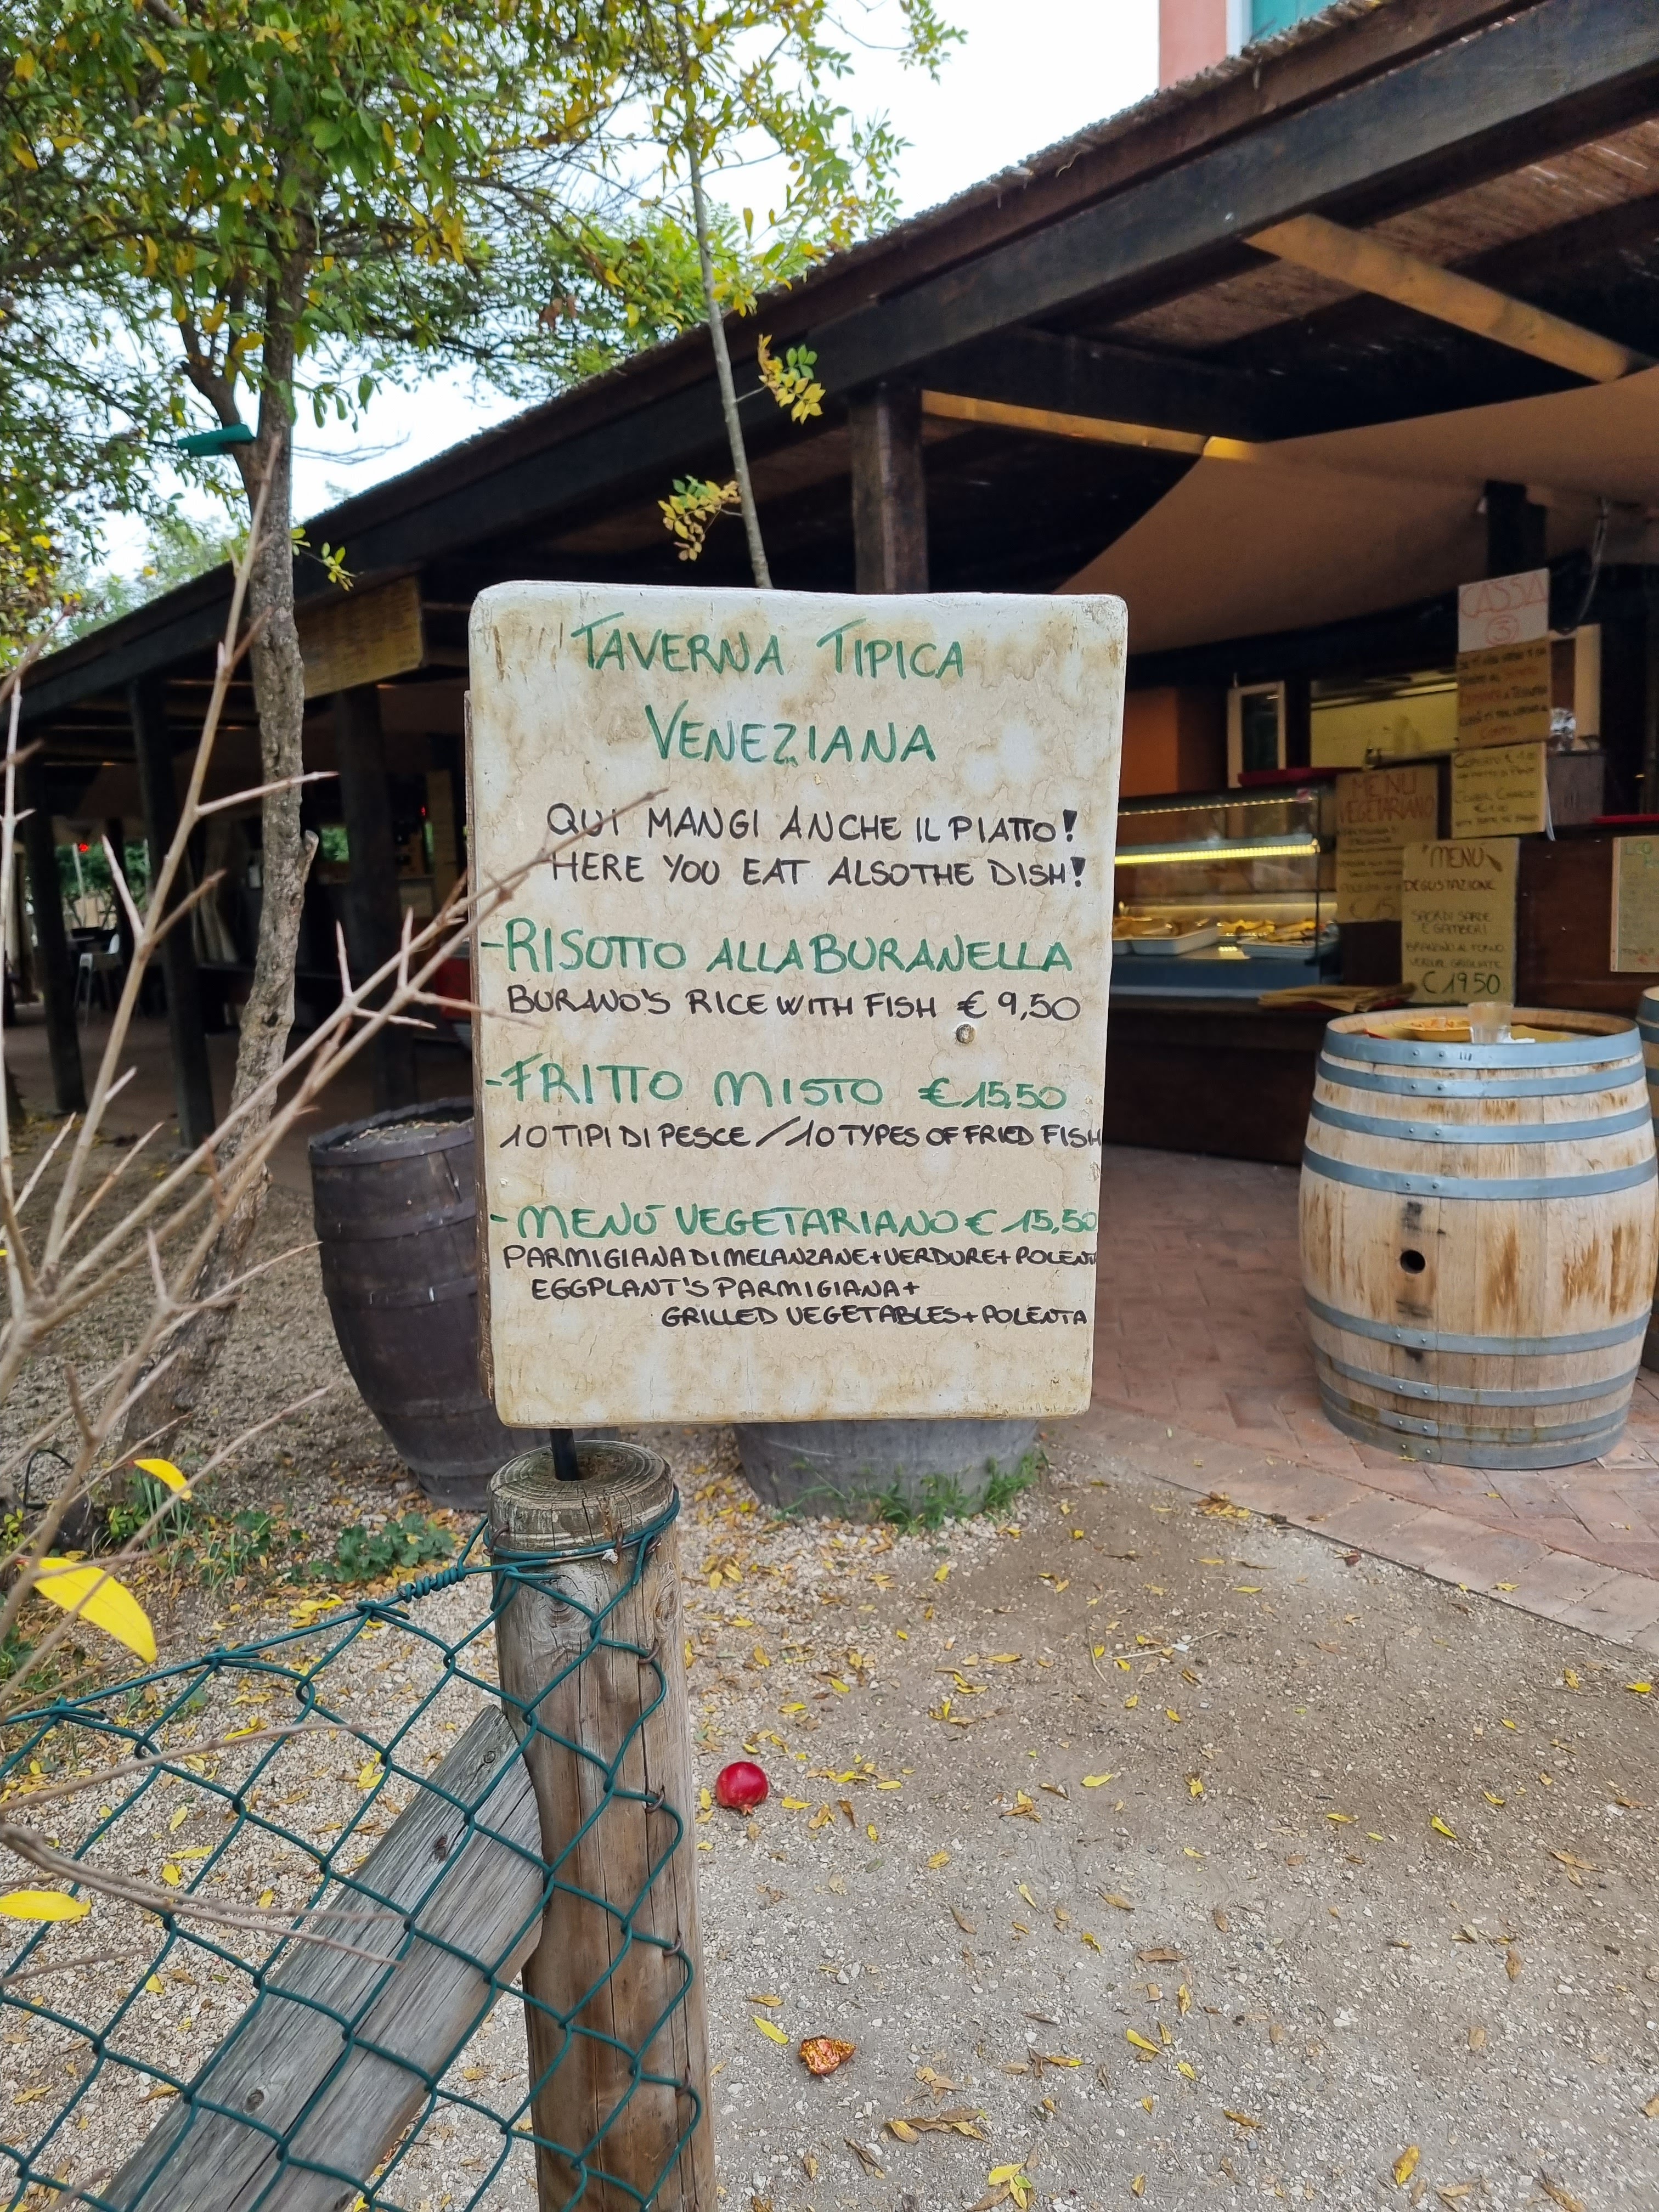 TAVERNA TIPICA
VENEZIANA
QUI MANGI ANCHE IL PIATTO!
HERE YOU EAT ALSO THE DISH!
-RISOTTO ALLA BURANELLA
BURANO'S RICE WITH FISH € 9,50
-FRITTO MISTO €15,50
10 TIPI DI PESCE / 10 TYPES OF FRIED FISH
-MENÙ VEGETARIANO € 15,50
PARMIGIANA DI MELANZANE+VERDURE+POLENT
EGGPLANT'S PARMIGIANA+
GRILLED VEGETABLES+POLENTA
CASSA
3
COPERTO
COVER CHARGE
MENU
VEGETARIANO
€ 15
"MENÙ
DEGUSTAZIONE
SAOR DI SARDE
E GAMBERI
AL FORNO
GRIGLIATE
€ 19.50